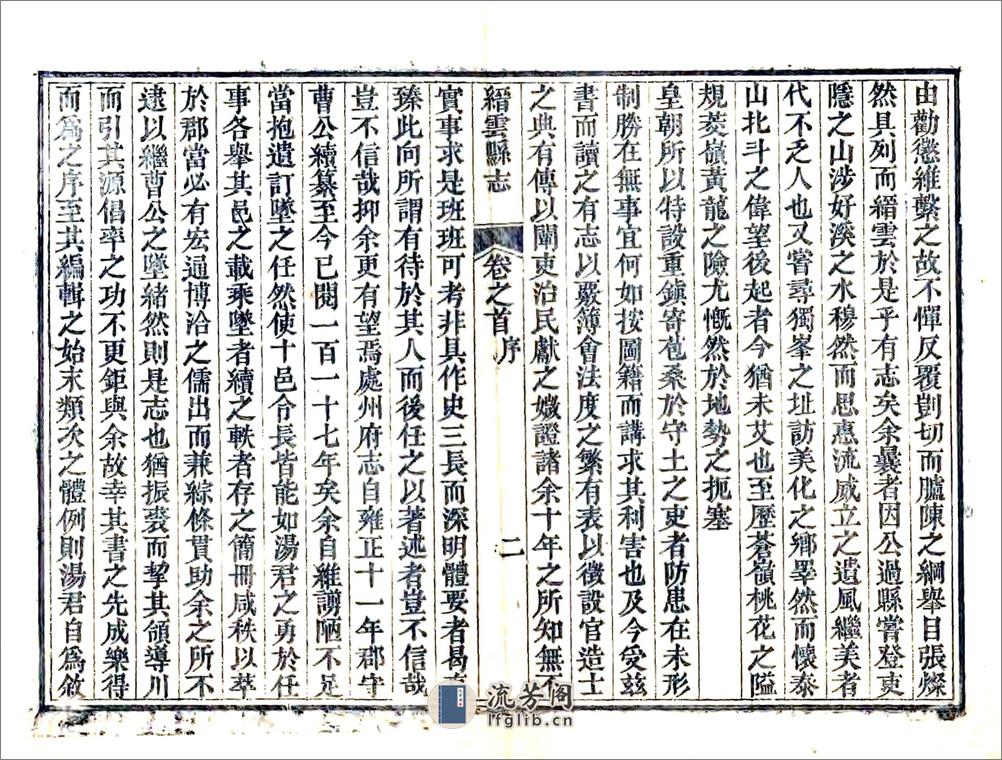 由勸懲維繫之故不憚反覆剴切而臚陳之綱舉目張燦
然具列而縉雲於是乎有志矣余曩者因公過縣嘗登吏
隱之山涉好溪之水穆然而思惠流威立之遺風繼美者
代不乏人也又嘗尋獨峯之址訪美化之鄉睪然而懷泰
山北斗之偉望後起者今猶未艾也至歷蒼嶺桃花之隘
規菱嶺黃龍之險尤慨然於地勢之扼塞
皇朝所以特設重鎮寄苞桑於守土之吏者防患在未形
制勝在無事宜何如按圖籍而講求其利害也及今受茲
書而讀之有志以覈簿會法度之繁有表以徵設官造士
之典有傳以闡吏治民獻之媺證諸余十年之所知無不
縉雲縣志 卷之首 序 二
實事求是班班可考非具作史三長而深明體要者曷克
臻此向所謂有待於其人而後任之以著述者豈不信哉
豈不信哉抑余更有望焉處州府志自雍正十一年郡守
曹公續纂至今已閱一百一十七年矣余自維謭陋不足
當抱遺訂墜之任然使十邑合長皆能如湯君之勇於任
事各舉其邑之載乘墜者續之軼者存之簡冊咸秩以萃
於郡當必有宏通博洽之儒出而兼綜條貫助余之所不
逮以繼曹公之墜緒然則是志也猶振裘而挈其領導川
而引其源倡率之功不更鉅與余故幸其書之先成樂得
而爲之序至其編輯之始末類次之體例則湯君自爲敘
流芳阁
lfglib.cn